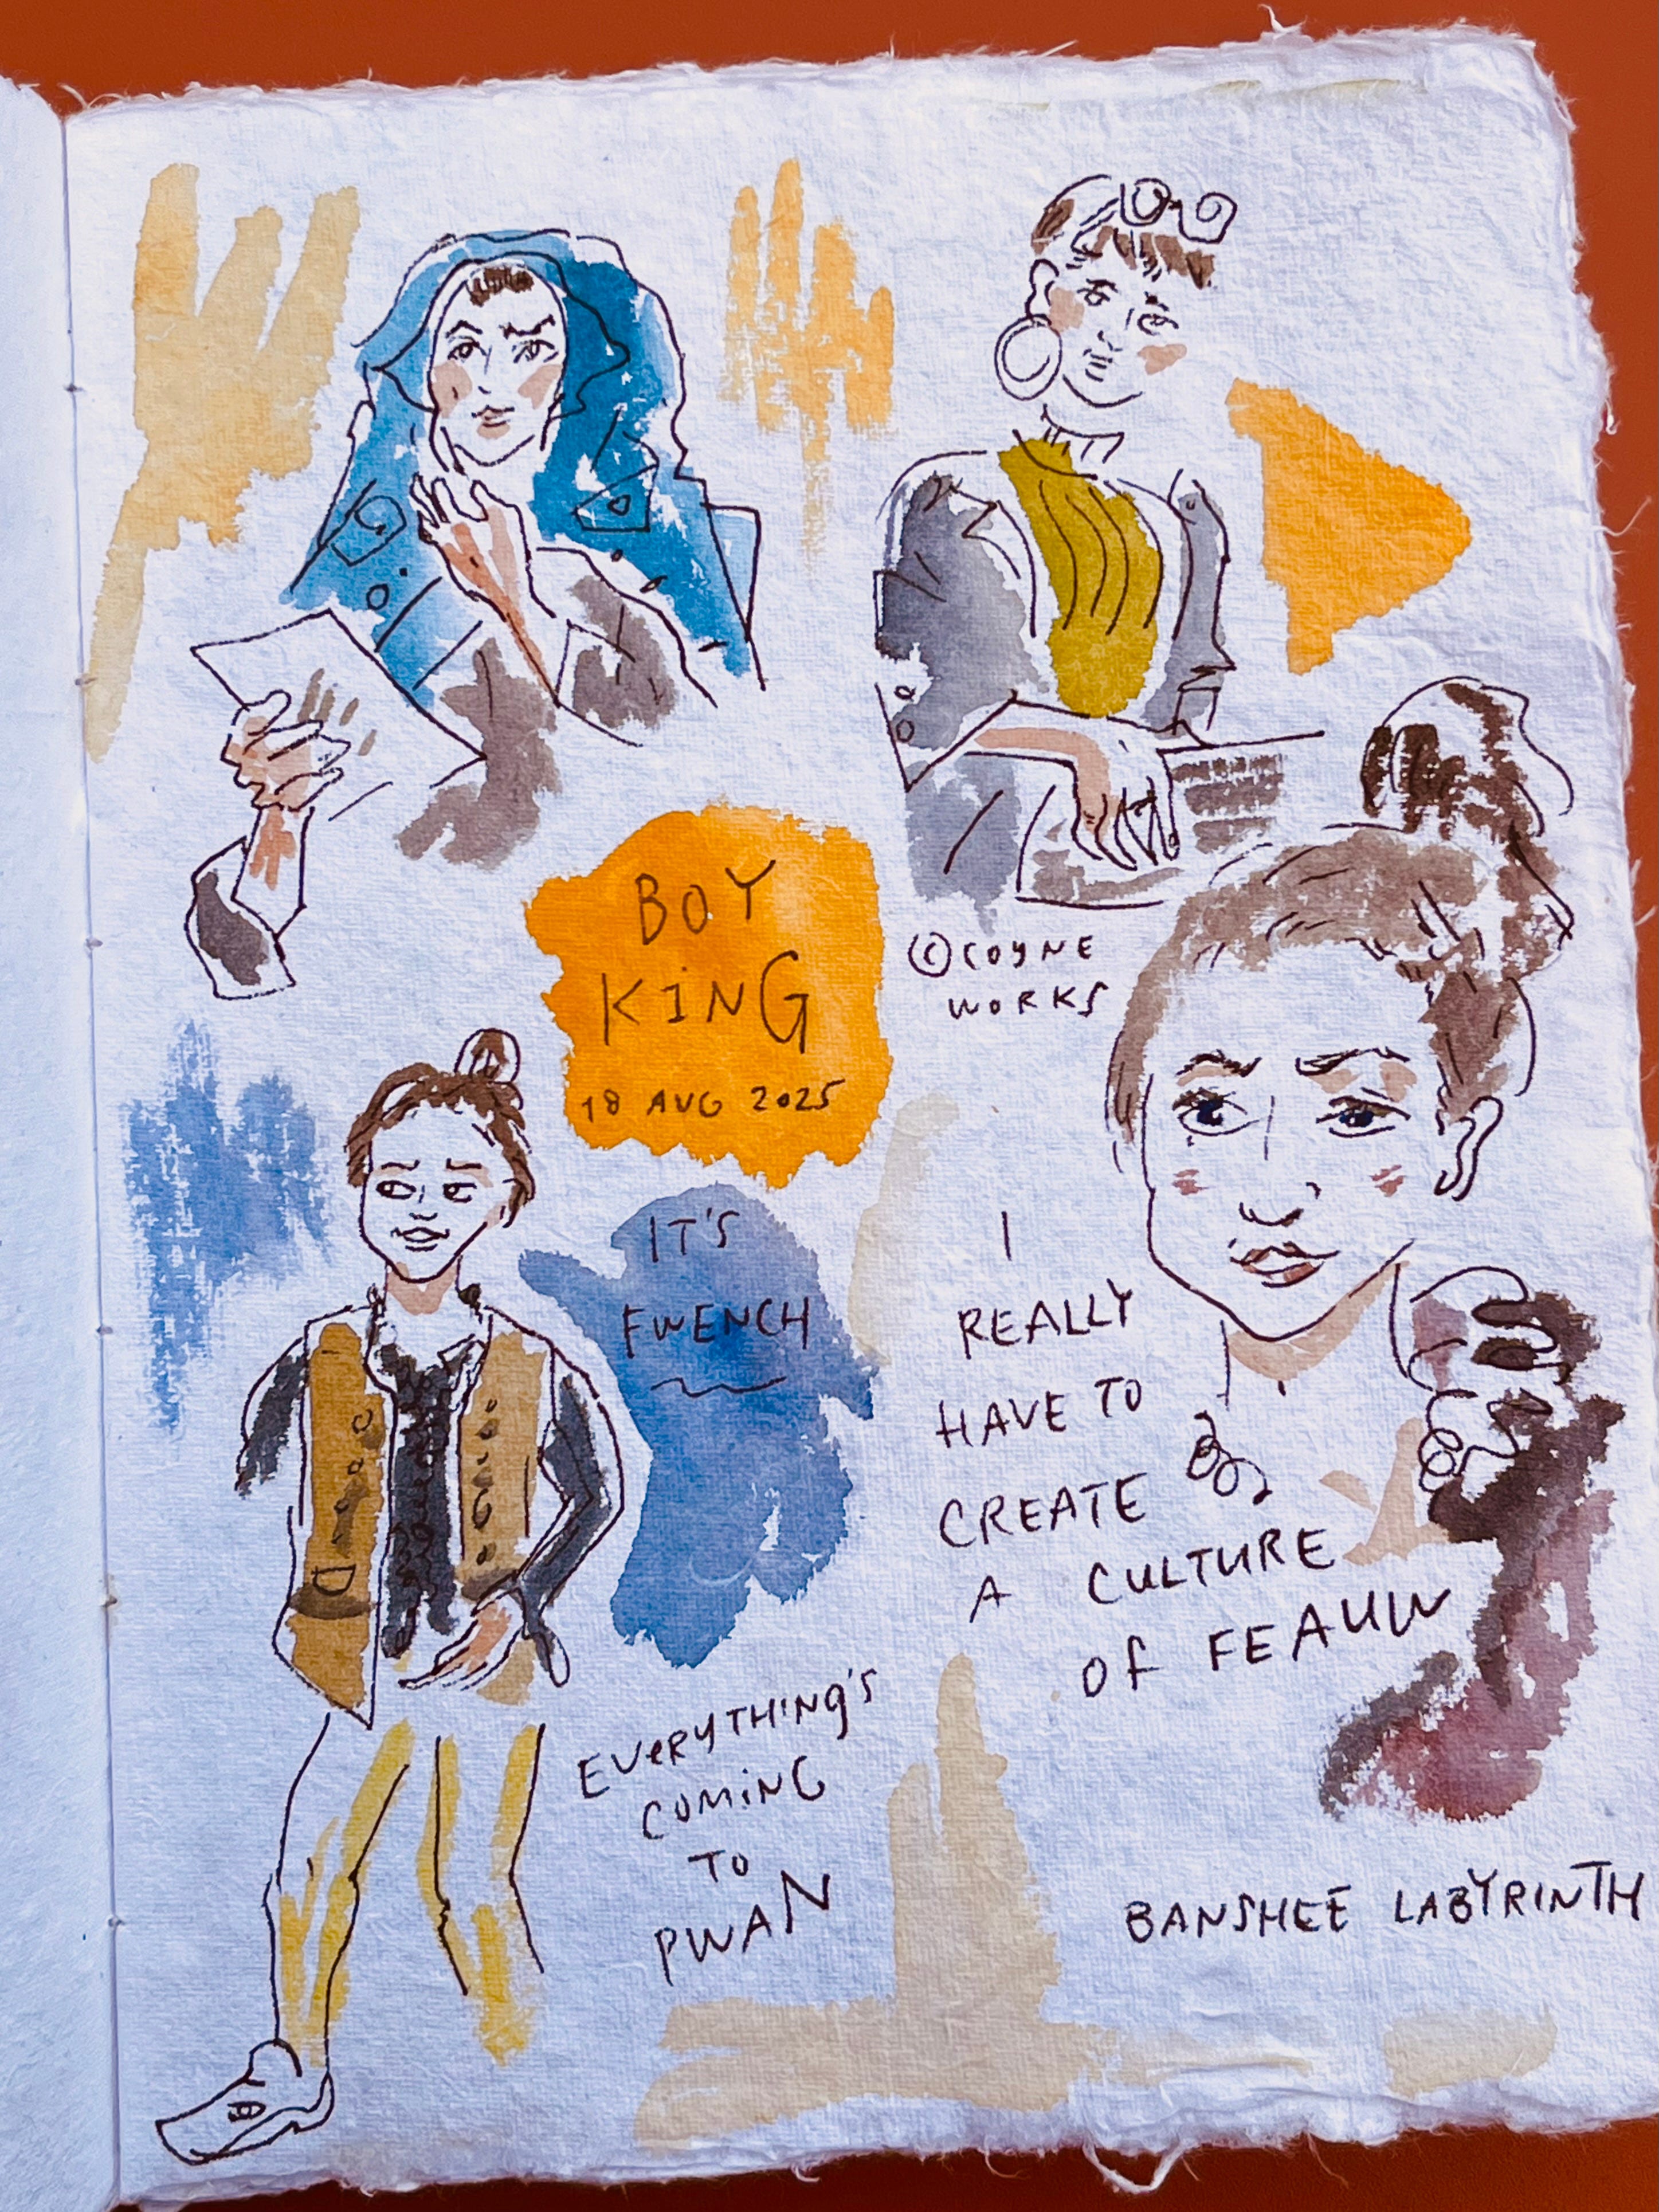 BOY
KING
18 AUG 2025
©COYNE
WORKS
IT'S
FWENCH
I
REALLY
HAVE TO
CREATE
A CULTURE
OF FEAUW
EVERYTHING'S
COMING
TO
PWAN
BANSHEE LABYRINTH